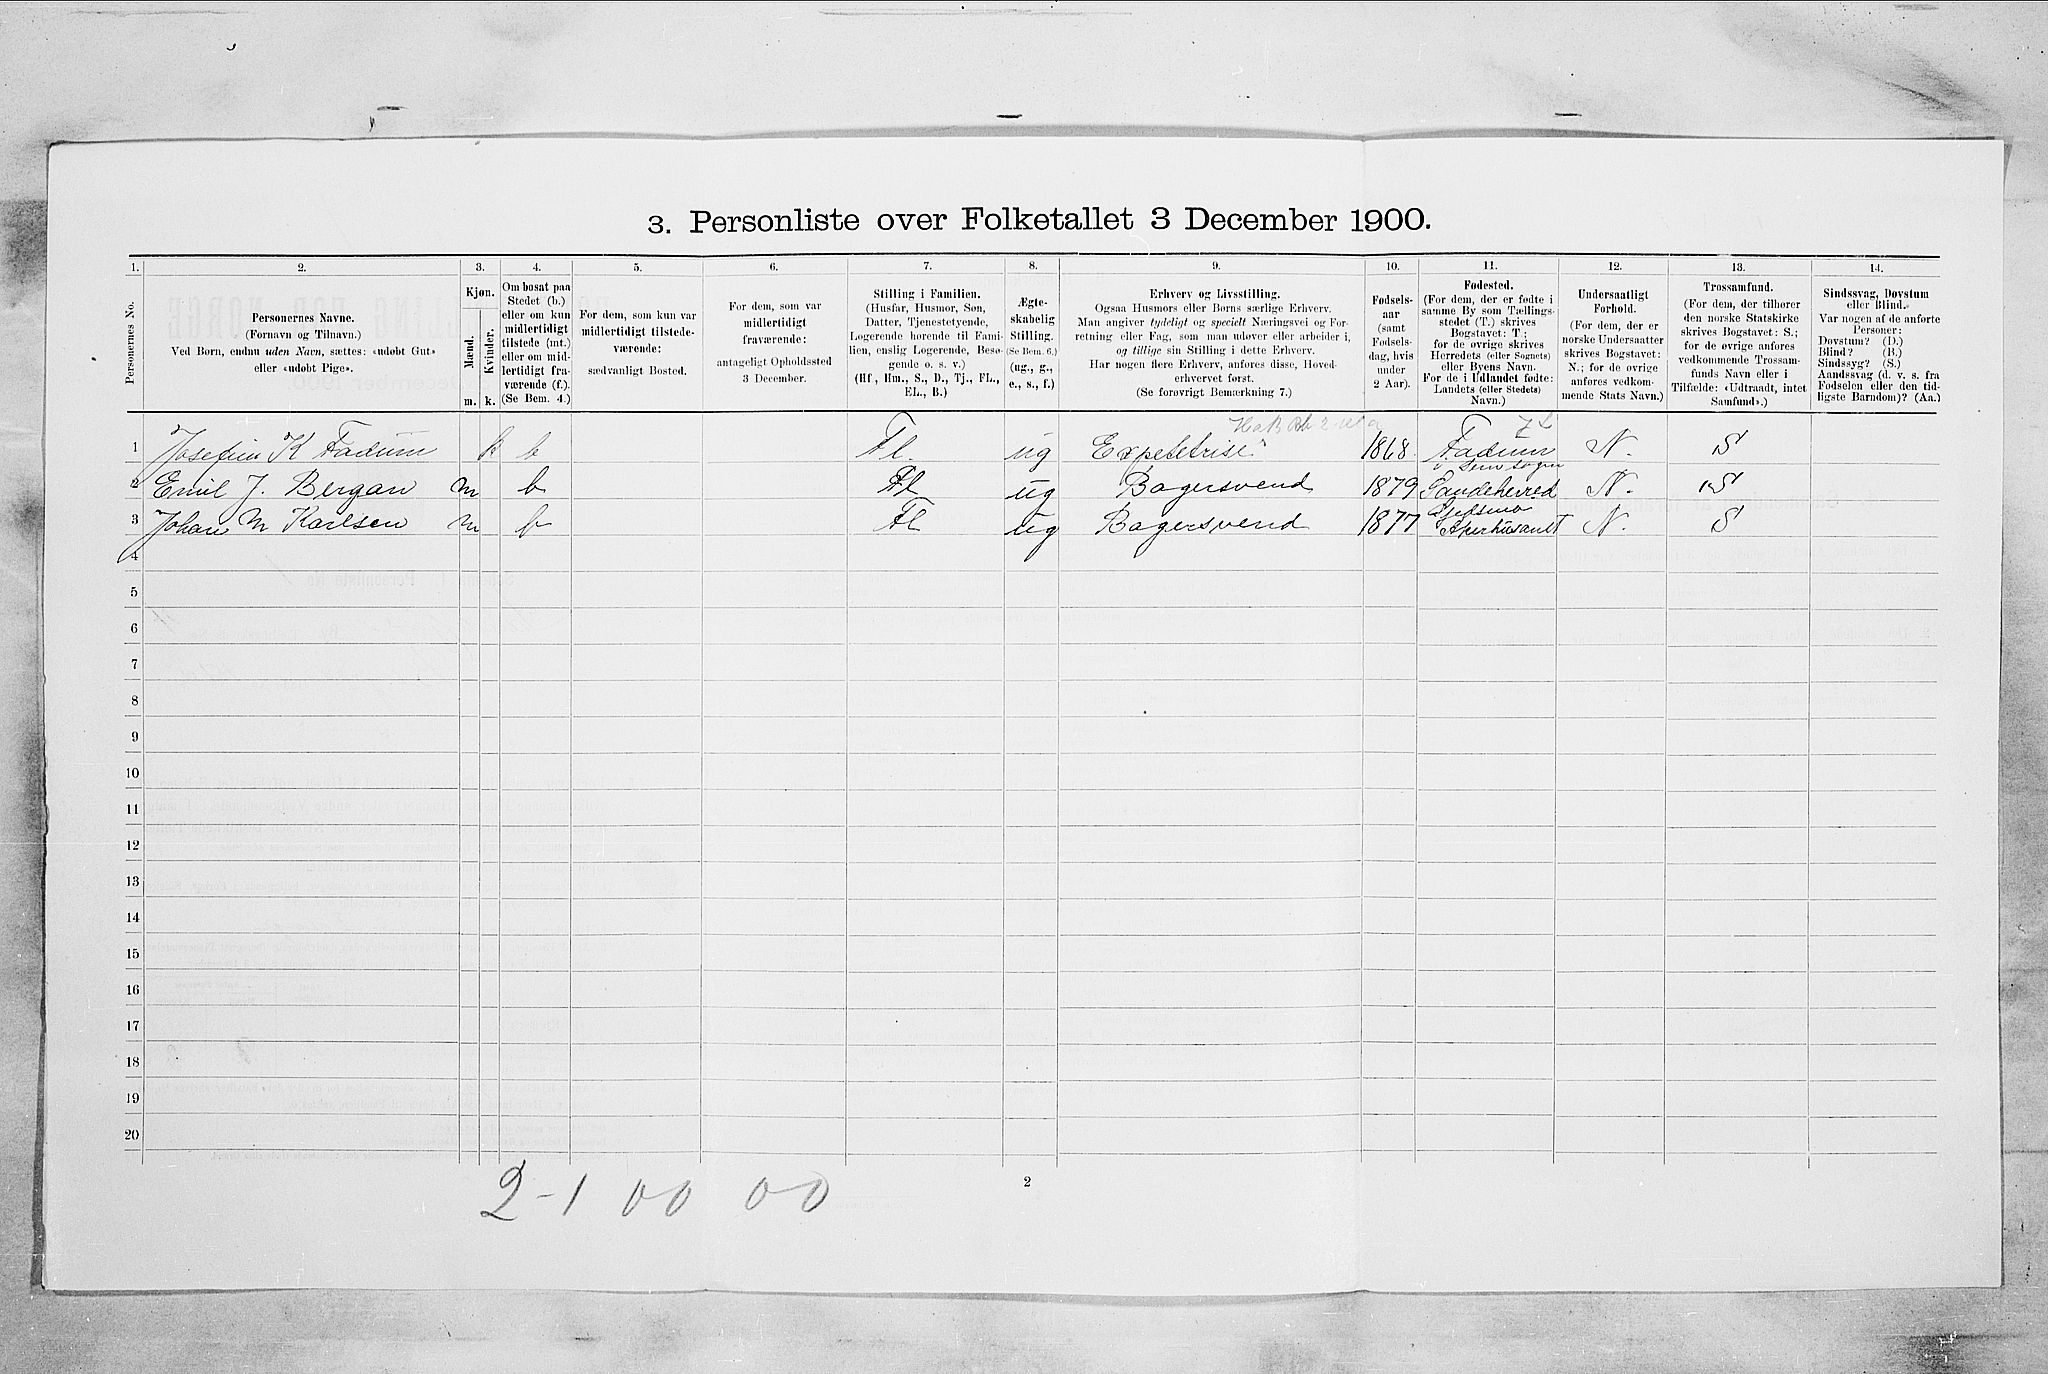 3. Personliste over Folketallet 3 December 1900.
1. 2. 3. 4. 5. 6. 7. 8. 9. 10. 11. 12. 13. 14.
Personernes No.
Personernes Navne.
(Fornavn og Tilnavn.)
Ved Børn, endnu uden Navn, sættes: «udøbt Gut»
eller «udøbt Pige».
Kjøn.
Mænd.
Kvinder.
m. k.
Om bosat paa
Stedet (b.)
eller om kun
midlertidigt
tilstede (mt.)
eller om mid-
lertidigt fra-
værende (f.).
(Se Bem. 4.)
For dem, som kun var
midlertidigt tilstede-
værende:
sædvanligt Bosted.
For dem, som var
midlertidigt
fraværende:
antageligt Opholdssted
3 December.
Stilling i Familien.
(Husfar, Husmor, Søn,
Datter, Tjenestetyende,
Logerende hørende til Fami-
lien, enslig Logerende, Besø-
gende o. s. v.)
(Hf., Hm., S., D., Tj., FL.,
EL., B.)
Ægte-
skabelig
Stilling.
(Se Bem. 6.)
(ug., g.,
e., s., f.)
Erhverv og Livsstilling.
Ogsaa Husmors eller Børns særlige Erhverv.
Man angiver tydeligt og specielt Næringsvei og For-
retning eller Fag, som man udøver eller arbeider i,
og tillige sin Stilling i dette Erhverv.
Har nogen flere Erhverv, anføres disse, Hoved-
erhvervet først.
(Se forøvrigt Bemærkning 7.)
Fødsels-
aar
(samt
Fødsels-
dag, hvis
under
2 Aar).
Fødested.
(For dem, der er fødte i
samme By som Tællings-
stedet (T.) skrives
Bogstavet: T;
for de øvrige skrives
Herredets (eller Sognets)
eller Byens Navn.
For de i Udlandet fødte:
Landets (eller Stedets)
Navn.)
Undersaatligt
Forhold.
(For dem, der er
norske Undersaatter
skrives Bogstavet:
N.; for de øvrige
anføres vedkom-
mende Stats Navn.)
Trossamfund.
(For dem, der tilhører
den norske Statskirke
skrives Bogstavet: S.;
for de øvrige anføres
vedkommende Trossam-
funds Navn eller i
Tilfælde: «Udtraadt, intet
Samfund».)
Sindssvag, Døvstum
eller Blind.
Var nogen af de anførte
Personer:
Døvstum? (D.)
Blind? (B.)
Sindssyg? (S.)
Aandssvag (d. v. s. fra
Fødselen eller den tid-
ligste Barndom)? (Aa.)
1 Josefin K Fadum k b Fl. ug Expeditrise 1868. Fadum N. S
Sem Sogn
2 Emil J. Bergan m b Fl ug Bagersvend 1879 Sandeherred N. S
3 Johan M Karlsen m b Fl ug Bagersvend 1877 Akerhusamt N. S
4
5
6
7
8
9
10
11
12
13
14
15
16
17
18
19
20
2-1 00 00
2